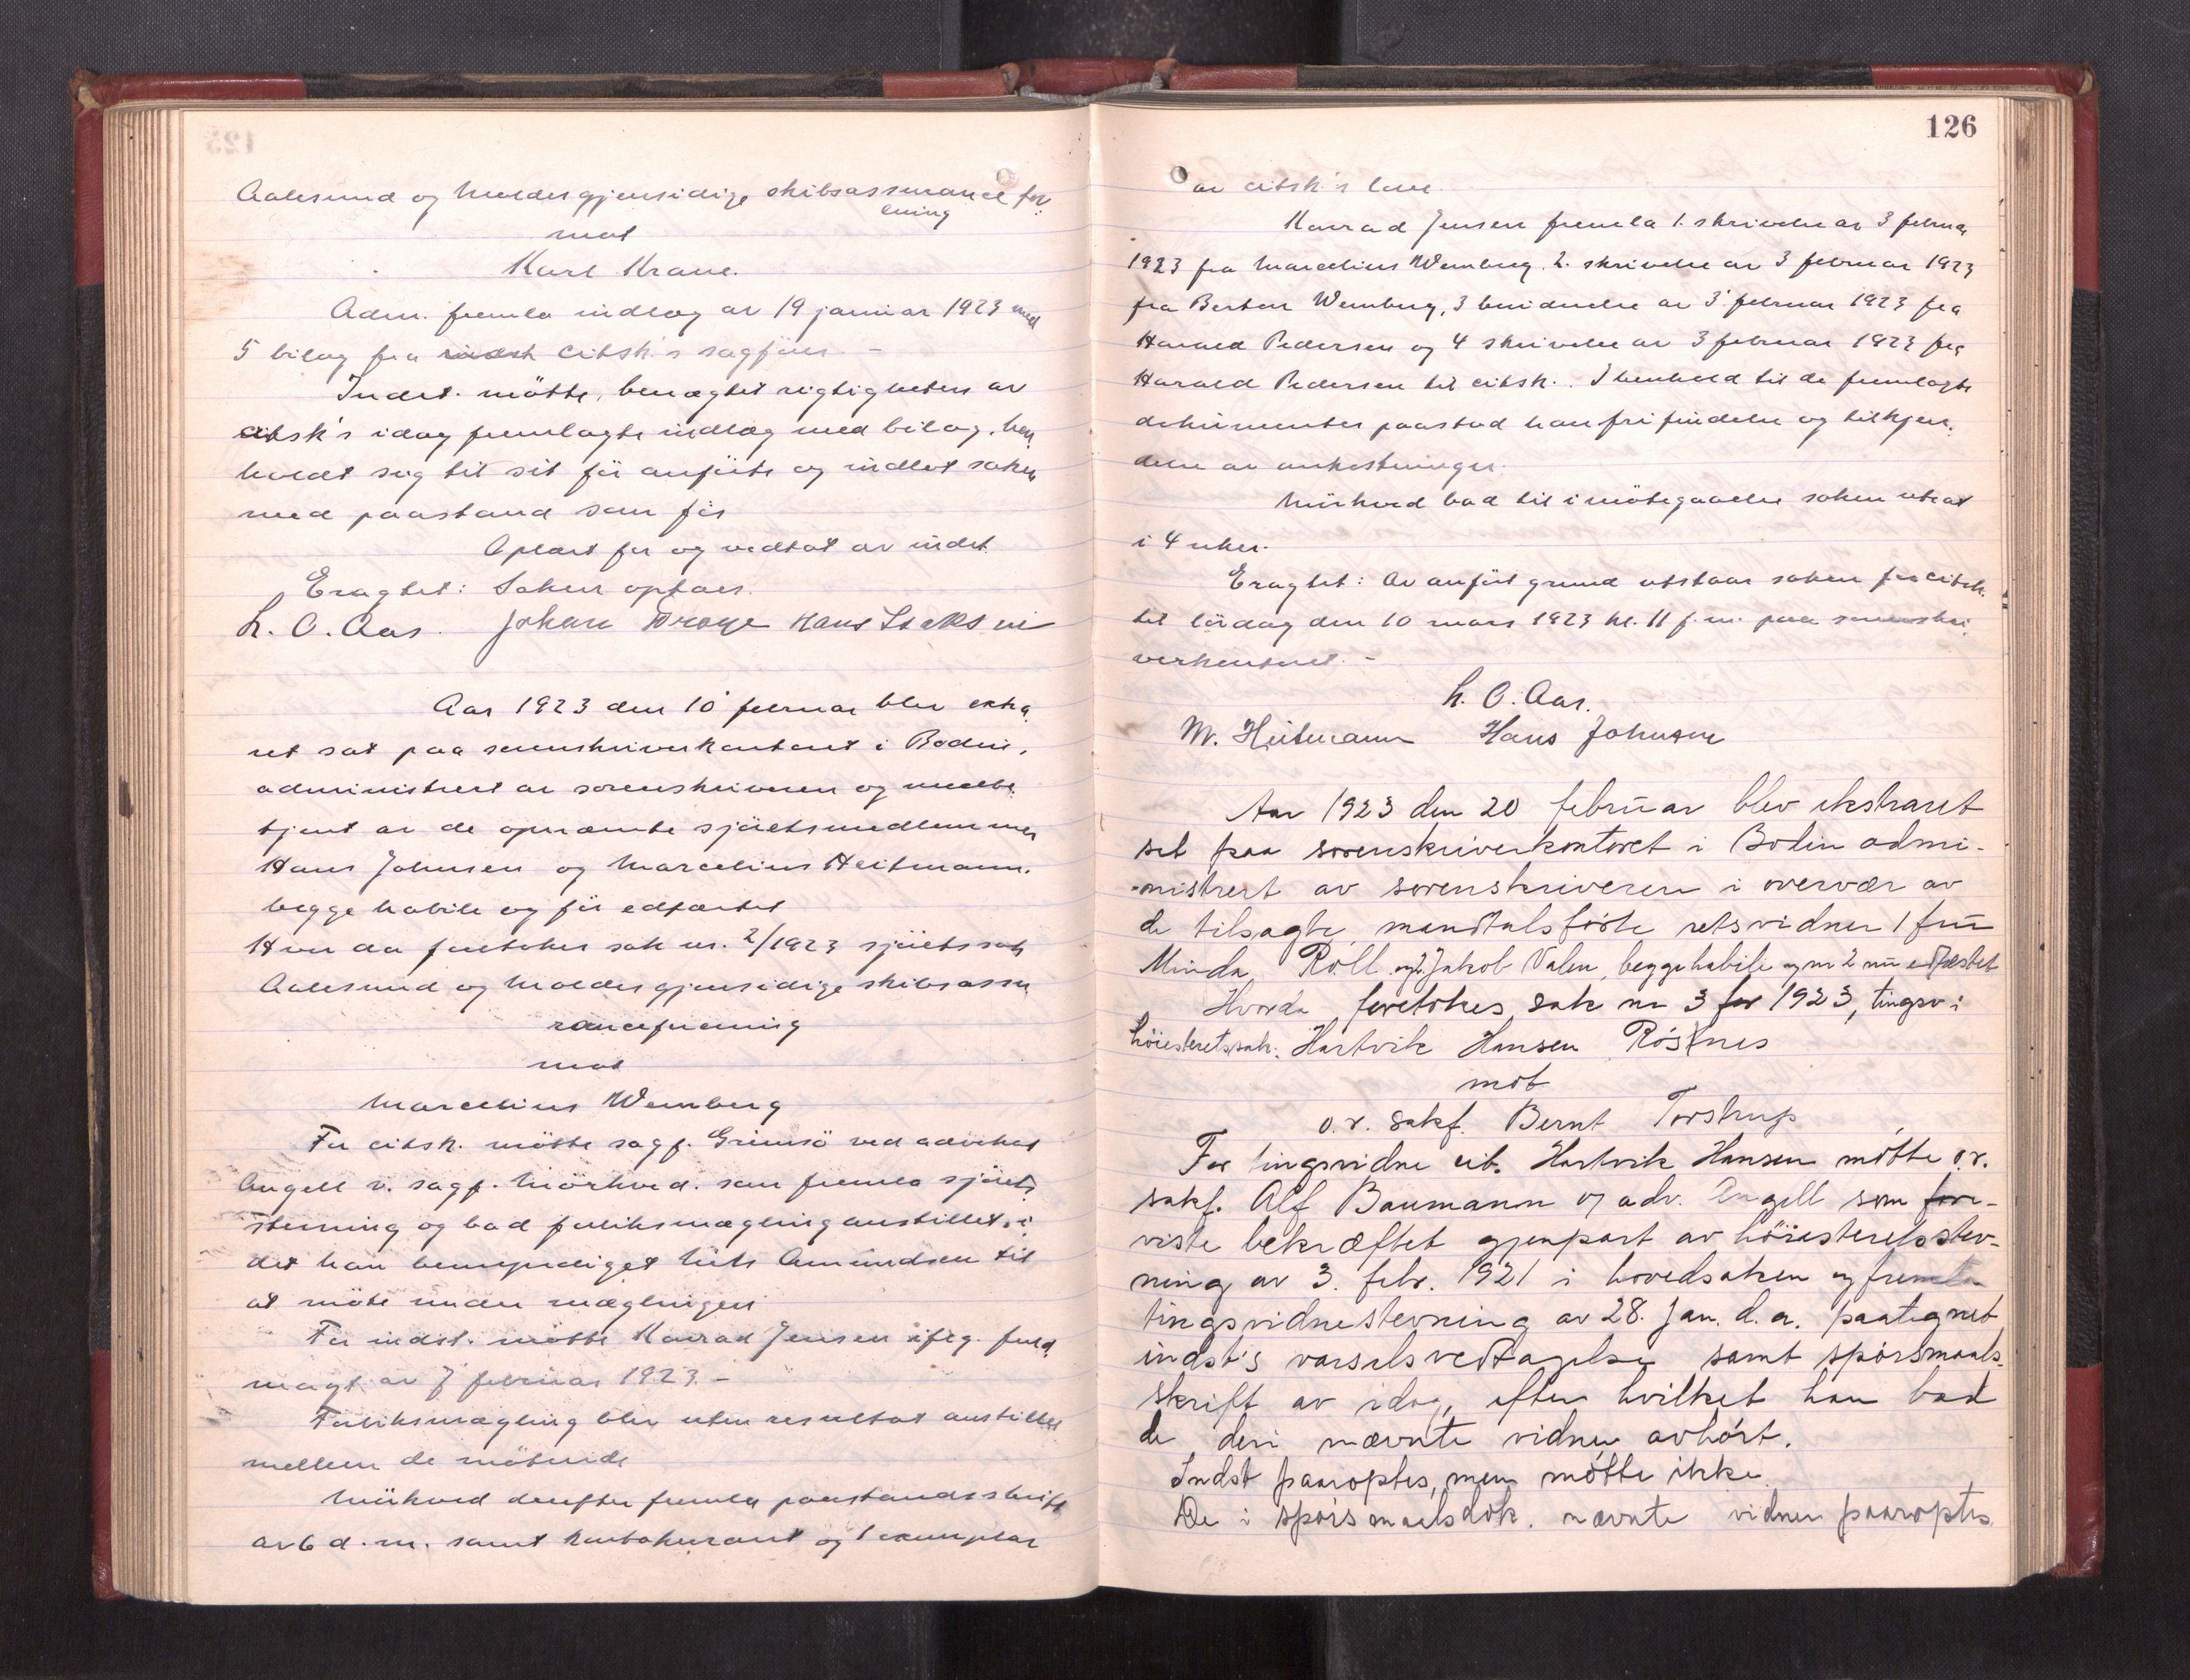 Aalesund og Moldes gjensidige skibsassurancefor:
ening
mot
Karl Krane.
Adm. fremla indlæg av 19 januar 1923 med
5 bilag fra citsk's sagfører -
Indst. mötte, benægtet rigtigheten av
citsk's idag fremlagte indlæg med bilag, hen
holdt sig til sit för anförte og indlot saken
med paastand som för
Oplæst for og vedtat av indst.
Eragtet: Saken optaes.
L. O. Aas. Johan Hans Isaksen
Aar 1923 den 10 februar blev ekstra
ret sat paa sorenskriverkontoret i Bodin,
administrert av sorenskriveren og medbe
tjent av de opnævnte sjöretsmedlemmer
Hans Johnsen og Marcelius Heitmann.
begge habile og för edfæstet
Hvor da foretokes sak nr. 2/1923 sjöretssak
Aalesund og Moldes gjensidige skibsassu
ranceforening
mot
Marcelius Wemberg
For citsk. mötte sagf. Grimsö ved advokat
Angell v. sagf. Mörkved. som fremla sjörets
stevning og bad forliksmægling anstillet, i
det han bemyndiget Nils Amundsen til
at möte under mæglingen
For indst. mötte Konrad Jensen ifölg. fuld
magt av 7 februar 1923 -
Forliksmægling blev uten resultat anstillet
mellem de mötende
Mörkved derefter fremla paastandsskrift
av 6 d. m. samt kontokurant og 1 exemplar
126
av citsk's love.
Konrad Jensen fremla 1. skrivelse av 3 februar
1923 fra Marcelius Wemberg. 2. skrivelse av 3 februar 1923
fra Berton Wemberg, 3 bevidnelse av 3 februar 1923 fra
Harald Pedersen og 4 skrivelse av 3 februar 1923 fra
Harald Pedersen til citsk. I henhold til de fremlagte
dokumenter paastod han frifindelse og tilkjen.
delse av omkostninger.
Mörkved bad til imötegaaelse saken utsat
i 4 uker.
Eragtet: Av anfört grund utstaar saken for citsk.
til lördag den 10 mars 1923 kl. 11 f. m. paa sorenskri
verkontoret. -
L. O. Aas.
M. Heitmann Hans Johnsen
Aar 1923 den 20 februar blev ekstraret
sat paa sorenskriverkontoret i Bodin admi-
nistrert av sorenskriveren i overvær av
de tilsagte mandtalsförte retsvidner 1 fru
Minda Röll og 2 Jakob Valen, begge habile og nr 2 nu edfæstet
Hvorda foretokes sak nr 3 for 1923, tingsv i
höiesteretssak. Hartvik Hansen Røsnes
mot
o.r. sakf. Bernt Torstrup
For tingsvidne cit. Hartvik Hansen mötte o.r.
sakf. Alf Baumann og adv. Angell som fore-
viste bekræftet gjenpart av höiesteretsstev-
ning av 3. febr. 1921 i hovedsaken og fremla
tingsvidnestevning av 28. jan. d.a. paategnet
indst's varselsvedtagelse samt spörsmaals-
skrift av idag, efter hvilket han bad
de deri nævnte vidner avhört.
Indst paaroptes, men mötte ikke.
De i spörsmaalsdok. nævnte vidner paaroptes.